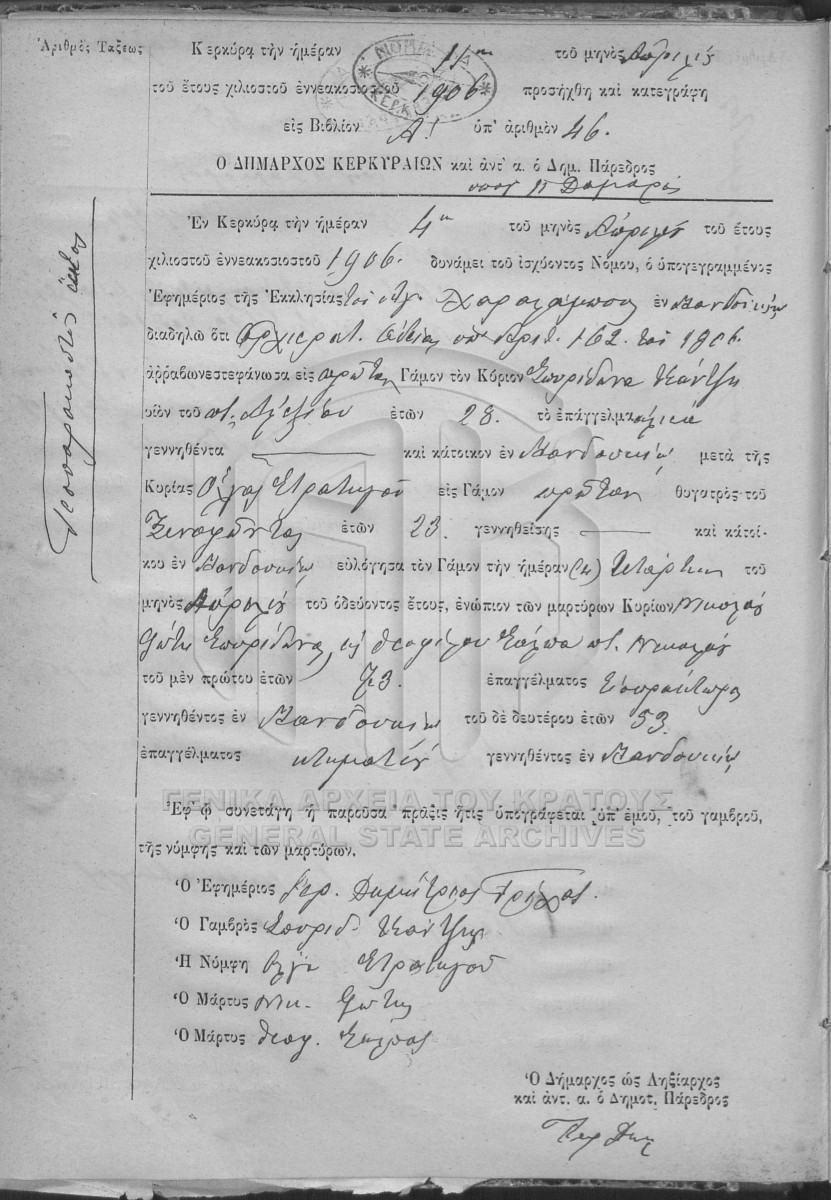 Ἀριθμὸς Τάξεως
Κερκύρᾳ τὴν ἡμέραν 11ην τοῦ μηνὸς Ἀπριλίου
τοῦ ἔτους χιλιοστοῦ ἐννεακοσιοστοῦ 1906 προσήχθη καὶ κατεγράφη
εἰς Βιβλίον Α! ὑπ' ἀριθμὸν 46.
Ο ΔΗΜΑΡΧΟΣ ΚΕΡΚΥΡΑΙΩΝ καὶ ἀντ' α. ὁ Δημ. Πάρεδρος
Ἐν Κερκύρᾳ τὴν ἡμέραν 4ην τοῦ μηνὸς Ἀπριλίου τοῦ ἔτους
χιλιοστοῦ ἐννεακοσιοστοῦ 1906. δυνάμει τοῦ ἰσχύοντος Νόμου, ὁ ὑπογεγραμμένος
Ἐφημέριος τῆς Ἐκκλησίας τοῦ Ἁγ. Χαραλάμπους ἐν Μανδουκίῳ
διαδηλῶ ὅτι Ἀρχιερατ. Ἀδείας ὑπ' Ἀριθ. 162. τοῦ 1906.
ἀρραβωνεστεφάνωσα εἰς πρῶτον Γάμον τὸν Κύριον Σπυρίδωνα
υἱὸν τοῦ π. Ἀλεξίου ἐτῶν 28. τὸ ἐπάγγελμα
γεννηθέντα καὶ κάτοικον ἐν Μανδουκίῳ μετὰ τῆς
Κυρίας Ὄλγας Στρατηγοῦ εἰς Γάμον πρῶτον θυγατρὸς τοῦ
Ξενοφῶντος ἐτῶν 23. γεννηθείσης καὶ κατοί-
κου ἐν Μανδουκίῳ εὐλόγησα τὸν Γάμον τὴν ἡμέραν Τετάρτην τοῦ
μηνὸς Ἀπριλίου τοῦ ὁδεύοντος ἔτους, ἐνώπιον τῶν μαρτύρων Κυρίων Νικολάου
Γώτη Σπυρίδωνος, Θεοφίλου π. Νικολάου
τοῦ μὲν πρώτου ἐτῶν 73. ἐπαγγέλματος Εἰσπράκτωρος
γεννηθέντος ἐν Μανδουκίῳ τοῦ δὲ δευτέρου ἐτῶν 53.
ἐπαγγέλματος κτηματίου γεννηθέντος ἐν Μανδουκίῳ
ΓΕΝΙΚΑ ΑΡΧΕΙΑ ΤΟΥ ΚΡΑΤΟΥΣ
Ἐφ' ᾧ συνετάγη ἡ παροῦσα πρᾶξις ἥτις ὑπογράφεται ὑπ' ἐμοῦ, τοῦ γαμβροῦ,
GENERAL STATE ARCHIVES
τῆς νύμφης καὶ τῶν μαρτύρων.
Ὁ Ἐφημέριος Ἱερ. Δημήτριος
Ὁ Γαμβρὸς Σπυρίδ.
Ἡ Νύμφη Ὄλγα Στρατηγοῦ
Ὁ Μάρτυς Νικ. Γώτης
Ὁ Μάρτυς Θεοφ.
Ὁ Δήμαρχος ὡς Ληξίαρχος
καὶ ἀντ. α. ὁ Δημοτ. Πάρεδρος
Τεσσαρακοστὸς ἕκτος